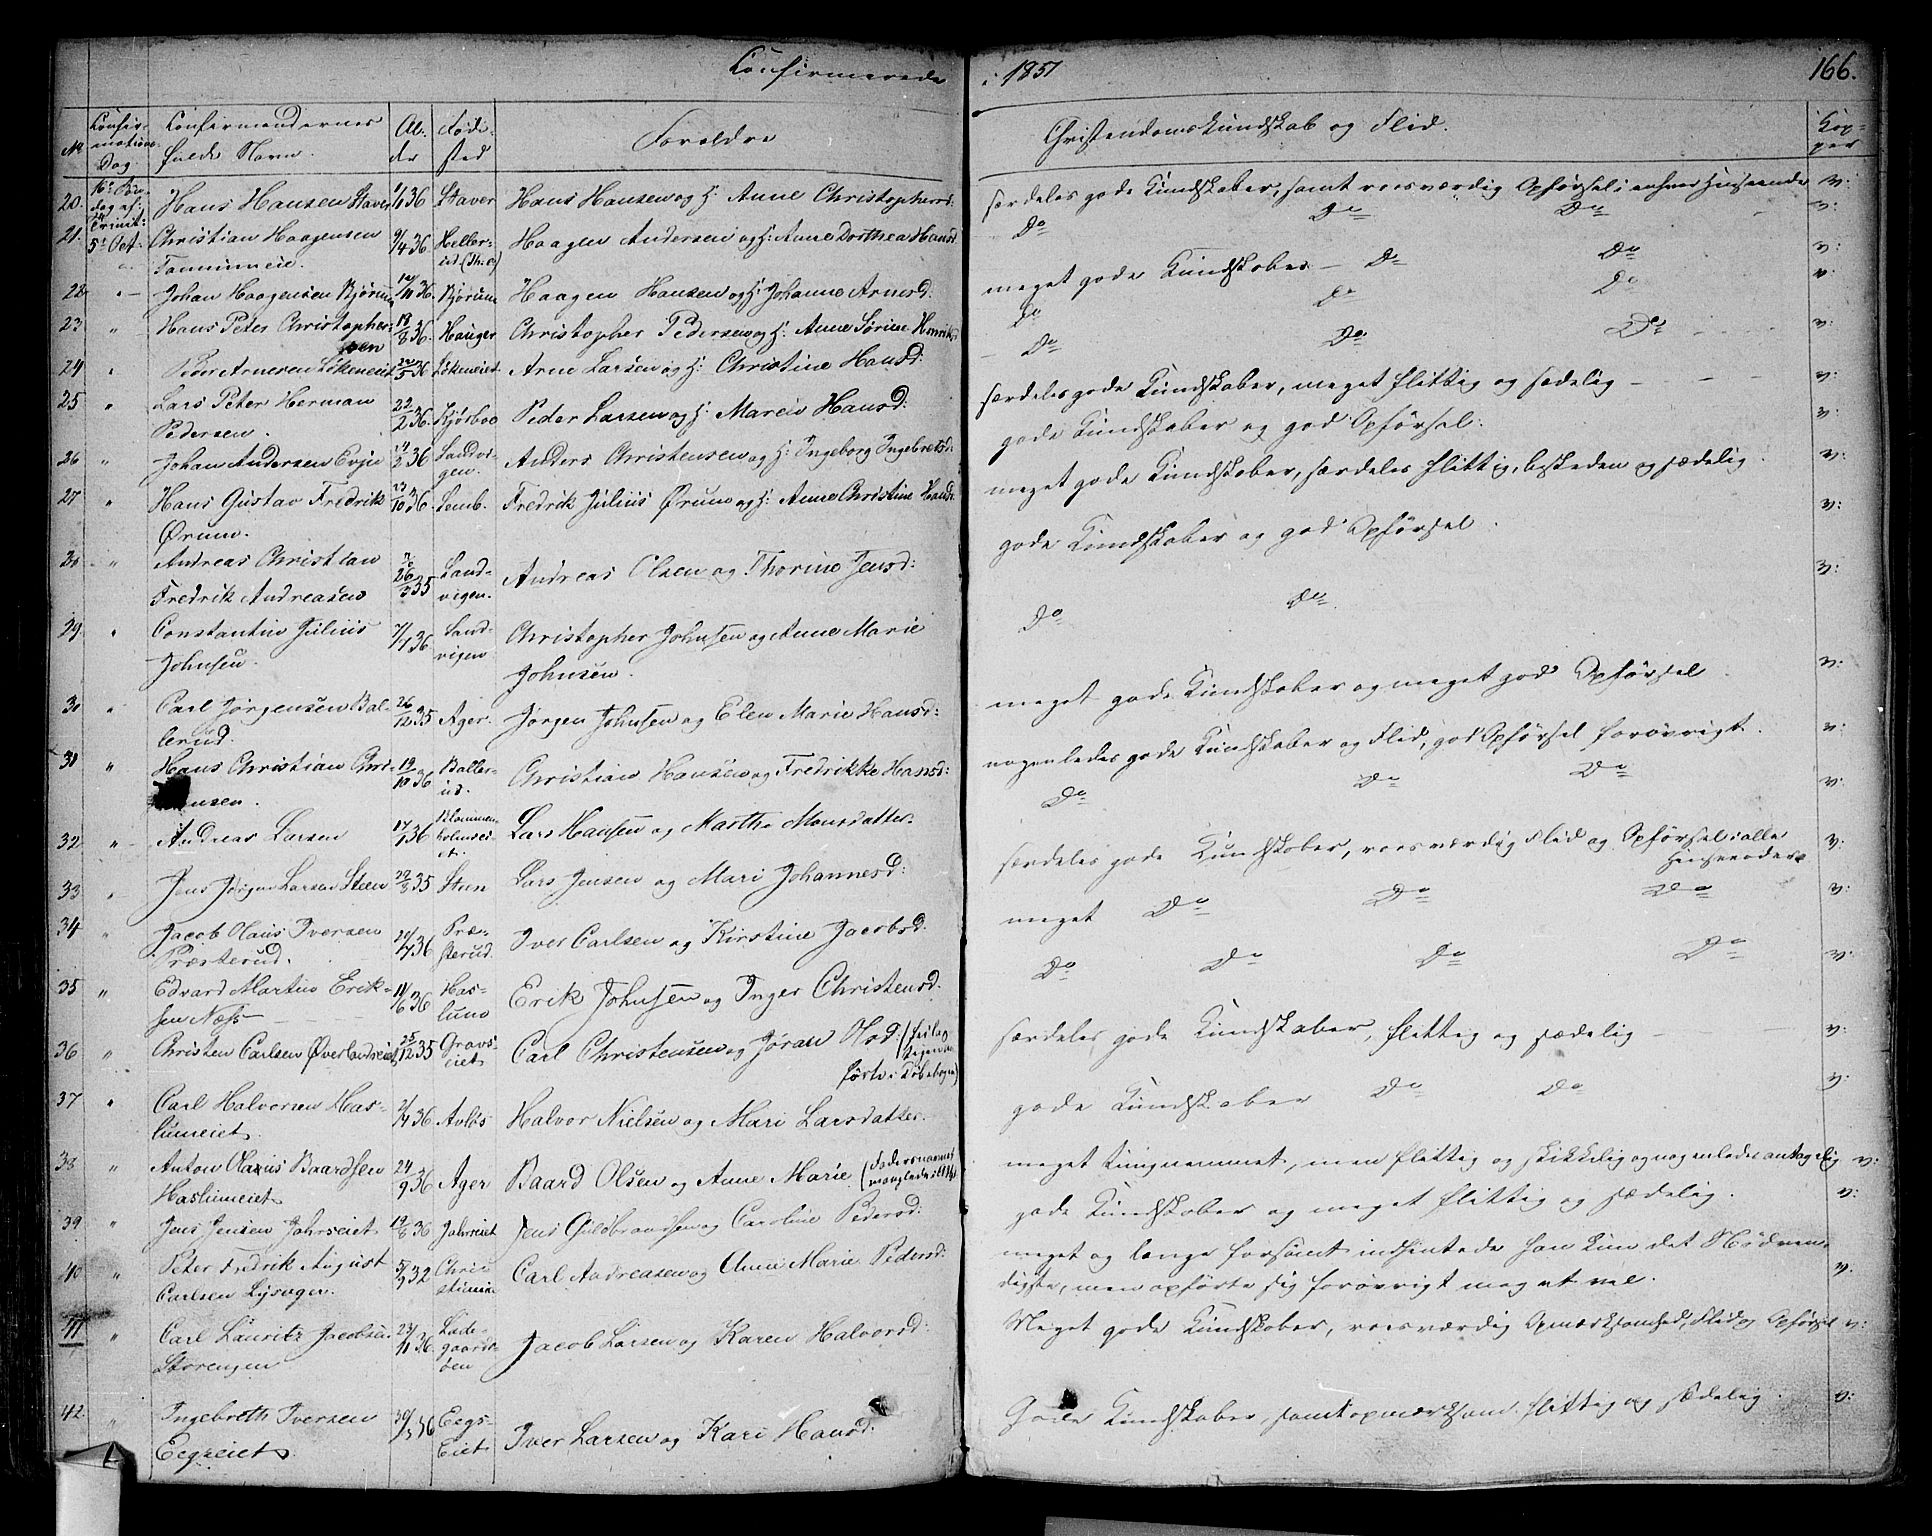 Confirmerede
i 1851
166.
No Confirmations Dag. Confirmandernes fulde Navn. Alder Fødested Forældre Christendomskundskab og Flid. Kopper
20. Hans Hansen Staver 36 Staver Hans Hansen og H: Anne Christophersd: særdeles gode Kundskaber, samt roesværdig Opførsel i enhver Henseende v:
21. 5te Oct. Christian Haagensen 9/4 36 Haagen Andersen og H: Anne Dorthea Hansd: Do Do Do v:
22 Johan Haagensen Bjørum 36. Bjørum Haagen Hansen og H: Johanne Arnesd: meget gode Kundskaber – Do Do v:
23 " Hans Peter Christopher-
sen 18/8 36. Hauger Christopher Pedersen og H: Anne Sørine Do Do Do v
24 Peder Arnesen Løkeneiet 36 Løkeneiet Arne Larsen og H: Christine Hansd: Do Do Do v:
25 " Lars Peter Herman
Pedersen. 22/2 36. Kjørboe Peder Larsen og H: Maren Hansd: særdeles gode Kundskaber, meget flittig og sædelig v:
26 " Johan Andersen Evju 36 Sandvi-
gen. Anders Christensen og H: Ingeborg Ingebretsd: gode Kundskaber og god Opførsel. v:
27 " Hans Gustav Fredrik
Ørum. 23/10 36. Fredrik Julius Ørum og H: Anne Christine Hansd: meget gode Kundskaber, særdeles flittig, beskeden og sædelig v:
" Andreas Christian
Fredrik Andreasen 35 Sand-
vigen. Andreas Olsen og Thorine Jensd: gode Kundskaber og god Opførsel. v:
29 Constantin Julius
Johnsen. 7/1 36 Sand-
vigen Christopher Johnsen og Anne Marie
Johnsen. Do Do v:
30 Carl Jørgensen Bal-
lerud. 26/12 35 Ager Jørgen Johnsen og Elen Marie Hansd: meget gode Kundskaber og meget god Opførsel v:
31 " Hans Christian Chri-
stiansen. 19/10 36 Baller-
ud. Christian Hansen og Fredrikke Hansd: nogenledes gode Kundskaber og Flid, god Opførsel forøvrigt. v:
32 " Andreas Larsen 17/1 36 Blommen-
holmsei-
et. Lars Hansen og Marthe Monsdatter. Do Do Do v:
33 Jens Jørgen Larsen Steen 22/8 35 Steen Lars Jensen og Mari Johannesd: særdeles gode Kundskaber, roesværdig Flid og Opførsel i alle
Henseender v:
34 " Jacob Hans Iversen
Præsterud. 36 Præ-
sterud. Iver Carlsen og Kirstine Jacobsd. meget Do Do Do v:
35 " Edvard Martin Erik-
sen Næss 11/6 36 Has-
lum Erik Johnsen og Inger Christensd. Do Do Do Do v:
36 " Christen Carlsen Øverlandseiet 25/12 35 Gravs-
eiet Carl Christensen og Jøran Olsd: særdeles gode Kundskaber, flittig og sædelig v:
37 " Carl Halvorsen Has-
lumeiet. 36 Avløs Halvor Nielsen og Mari Larsdatter. gode Kundskaber Do Do v:
38 " Anton Olavus Baardsen
Haslumeiet 24/9 36 Ager Baard Olsen og Anne Marie meget tungnemmet, men flittig og skikkelig og nogenledes antagelig v:
39 " Jens Jensen Jahrseiet 19/8 36 Jahrseiet Jens Guldbrandsen og Caroline Pedersd: gode Kundskaber og meget flittig og sædelig. v:
40 " Peter Fredrik August
Carlsen Lysager. 5/9 32 Chri-
stiania Carl Andreasen og Anne Marie Pedersd: meget og længe forsømt indhentede han kun det Nødven-
digste, men opførte sig forøvrigt meget vel. v.
41 " Carl Lauritz Jacobsen
Storengen 36 Lade-
gaards-
øen Jacob Larsen og Karen Halvorsd: Meget gode Kundskaber, roesværdig Opmærksomhed, Flid og Opførsel v:
42. " Ingebreth Iversen
Eegseiet 30/3 36 Eegs-
Eiet Iver Larsen og Kari Hansd: Gode Kundskaber, samt opmærksom, flittig og sædelig. v: